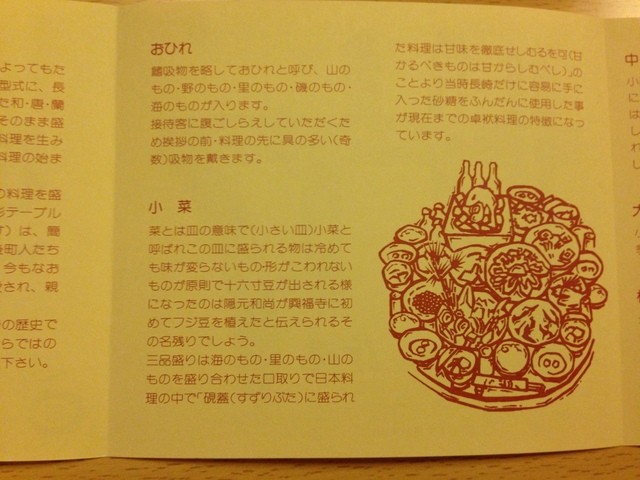 よってもた
型式に、長
た和・唐・蘭
そのまま盛
料理を生み
料理の始ま
の料理を盛
形テーブル
す）は、簡
町人たち
今もなお
され、親
の歴史で
らではの
下さい。
おひれ
鰭吸物を略しておひれと呼び、山の
もの・野のもの・里のもの・磯のもの・
海のものが入ります。
接待客に腹ごしらえしていただくた
め挨拶の前・料理の先に具の多い(奇
数)吸物を戴きます。
小 菜
菜とは皿の意味で(小さい皿)小菜と
呼ばれこの皿に盛られる物は冷めて
も味が変らないもの・形がこわれない
ものが原則で十六寸豆が出される様
になったのは隠元和尚が興福寺に初
めてフジ豆を植えたと伝えられるそ
の名残りでしょう。
三品盛りは海のもの・里のもの・山の
ものを盛り合わせた口取りで日本料
理の中で「硯蓋(すずりぶた)に盛られ
た料理は甘味を徹底せしむるを可(甘
かるべきものは甘からしむべし)」の
ことより当時長崎だけに容易に手に
入った砂糖をふんだんに使用した事
が現在までの卓袱料理の特徴になっ
ています。
中